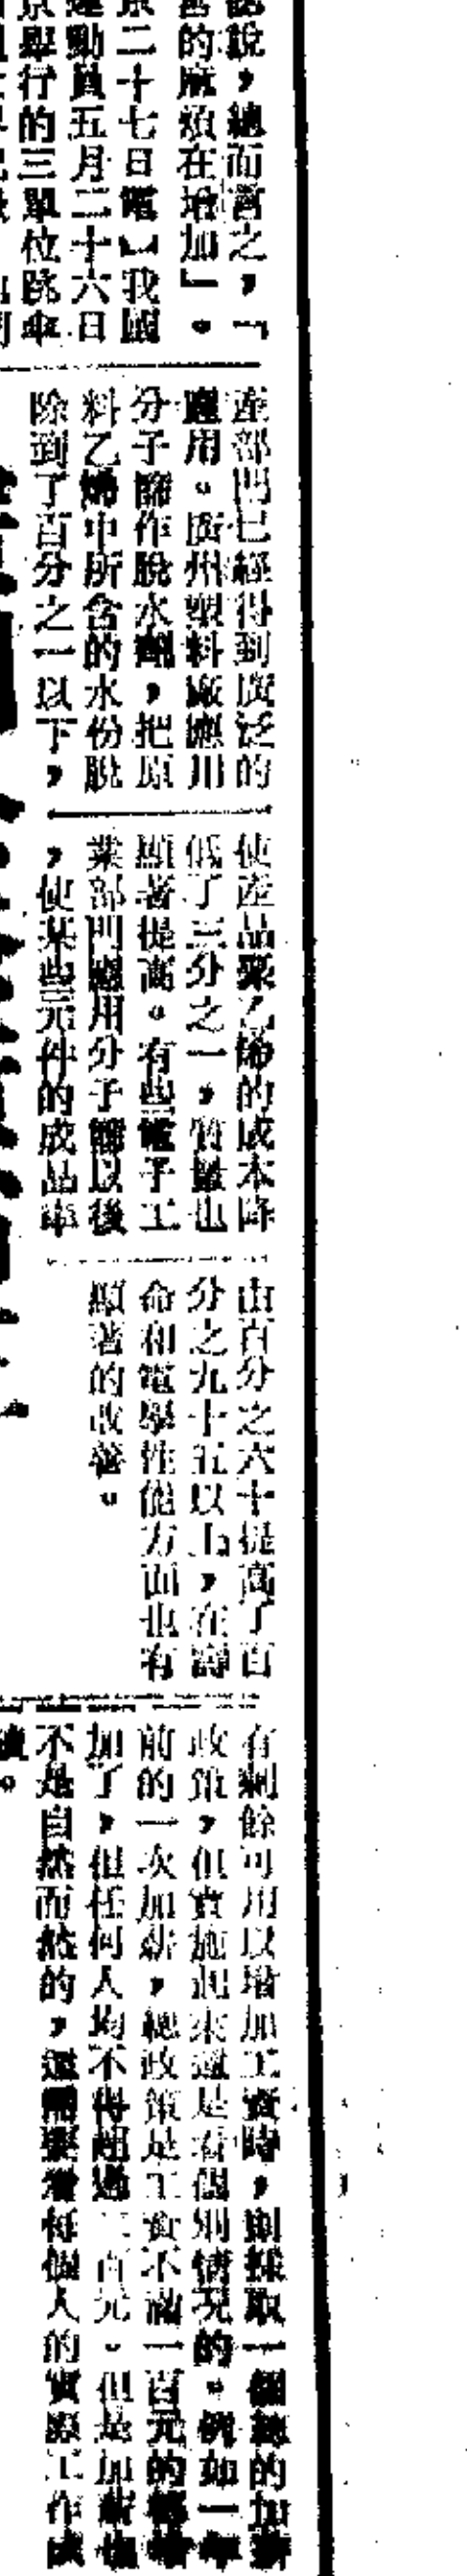 說，總而言之，「
的麻煩在增加」。
二十七日電】我國
運動員五月二十六日
京舉行的三單位跳傘
產部門已經得到廣泛的
應用。廣州塑料廠應用
分子篩作脫水劑，把原
料乙烯中所含的水份脫
除到了百分之一以下，
使產品聚乙烯的成本降
低了三分之一，質量也
顯著提高。有些電子工
業部門應用分子篩以後
，使某些元件的成品率
由百分之六十提高了百
分之九十五以上，在壽
命和電學性能方面也有
顯著的改善。
有剩餘可用以增加工資時，則採取一個總的加薪
政策，但實施起來還是看個別情況的。例如一年
前的一次加薪，總政策是工資不滿一百元的都增
加了，但任何人均不得超過二百元。但是加薪也
不是自然而然的，還需要看每個人的實際工作成
績。